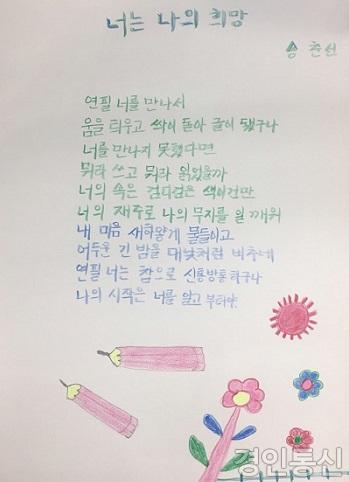 너는 나의 희망
송 춘선
연필 너를 만나서
움을 틔우고 싹이 돋아 글이 됐구나
너를 만나지 못했다면
뭐라 쓰고 뭐라 읽었을까
너의 속은 검디검은 색이건만
너의 재주로 나의 무지를 일깨워
내 마음 새하얗게 물들이고
어두운 긴 밤을 대낮처럼 비추네
연필 너는 참으로 신통방통하구나
나의 시작은 너를 알고 부터야
경인통신